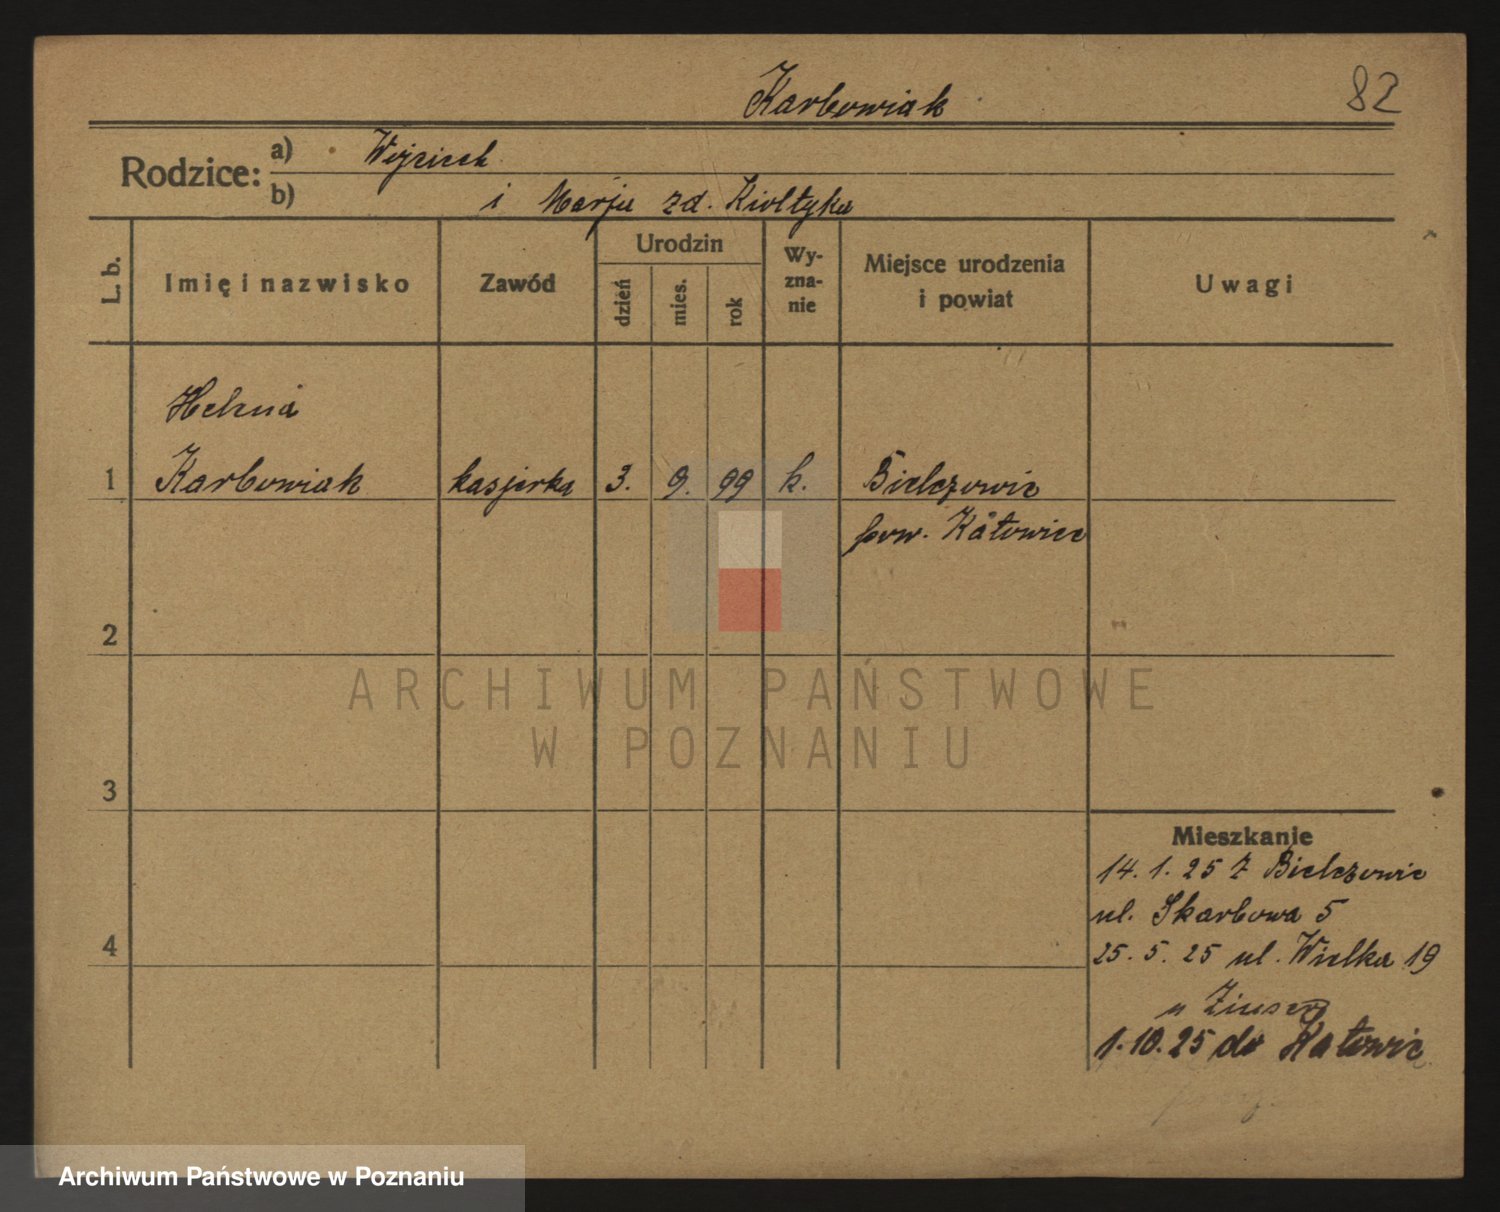 Karbowiak
82
Rodzice:
a) Wojciech
b) i Marja zd. Kiołtyka
L. b.
Imię i nazwisko
Zawód
Urodzin
dzień
mies.
rok
Wy-
zna-
nie
Miejsce urodzenia
i powiat
Uwagi
Helena
1 Karbowiak kasjerka 3. 9. 99 k. Bielszowic
pow. Katowice
2
ARCHIWUM PAŃSTWOWE
W POZNANIU
3
4
Mieszkanie
14. 1. 25 z Bielszowic
ul. Skarbowa 5
25. 5. 25 ul. Wielka 19
u
1. 10. 25 do Katowic
Archiwum Państwowe w Poznaniu